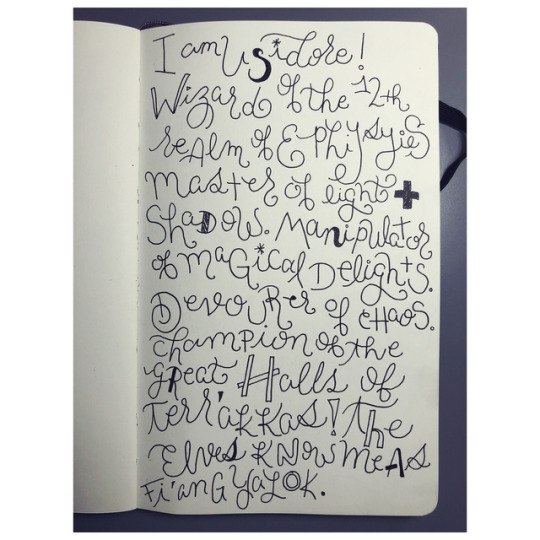 I am Usidore!
Wizard of the 12th
reAlm of Ephysyies
master of light +
ShaDow. Manipulator
of maGical Delights.
DevouRer of cHaos.
champion of the
great Halls of
Terr'akkas! The
elves kNow me As
Fi'anG YaLOk.